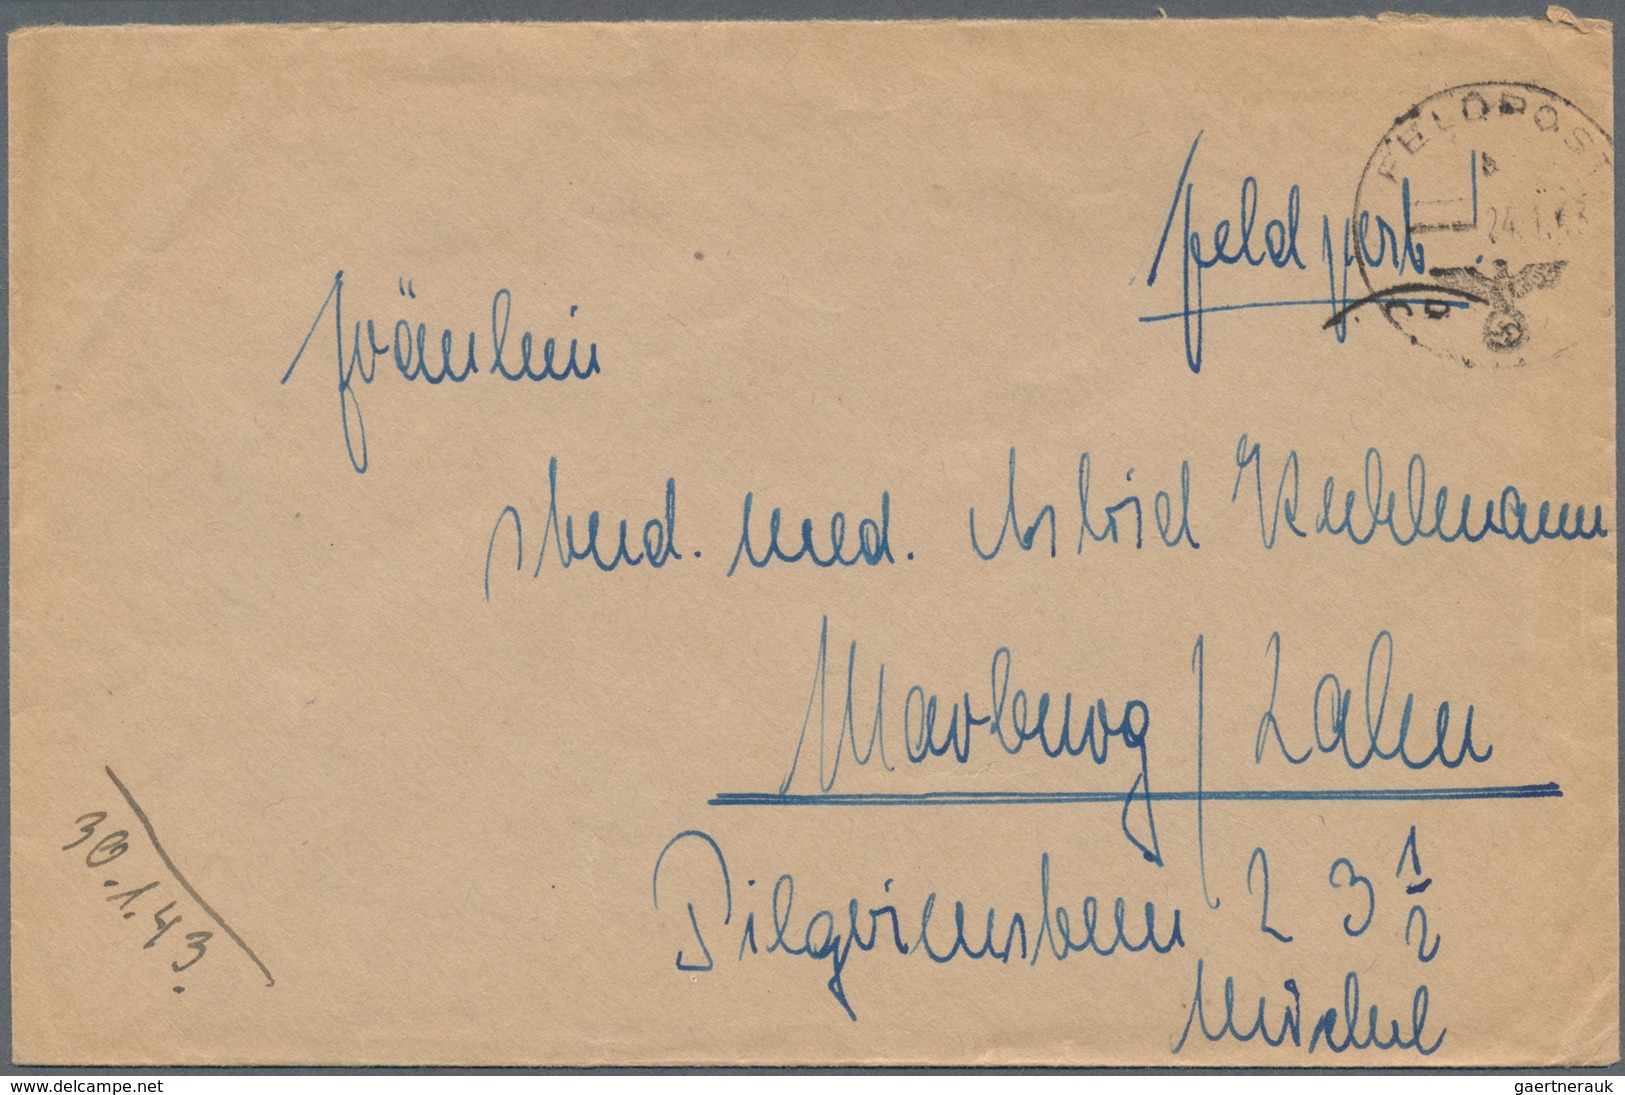 FELDPOST
b
24.1.43
Feldpost
Fräulein
stud. med. Astrid
Marburg / Lahn
Pilgrimstein 23 1/2
30.1.43.
www.delcampe.net
gaertnerauk